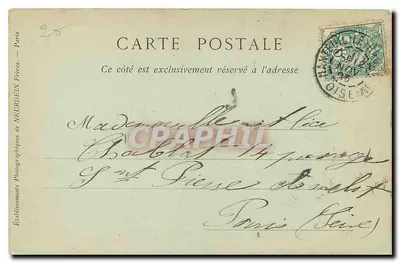 20
CARTE POSTALE
Ce côté est exclusivement réservé à l'adresse
Etablissements Photographiques de NEURDEIN Frères. — Paris
NANTEUIL
NOV
OISE
Mademoiselle Alice
CPAPHIL
Chablat 14 passage
St Pierre Amelot
Paris (Seine)